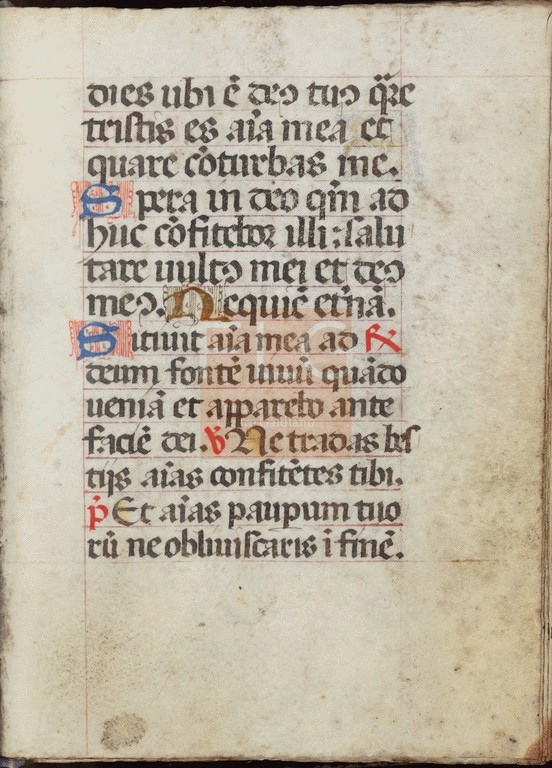 dies ubi ē deꝰ tuꝰ q̄re
tristis es aīa mea et
quare cōturbas me.
Spera in deo qm̄ ad
huc cōfitebor illi: salu
tare uultꝰ mei et deꝰ
meꝰ. Requiē et̄nā.
Sitiuit aīa mea ad ℟
deum fontē uiuū quādo
ueniā et apparebo ante
faciē dei. ℣ Ne tradas bes
tijs aīas confitētes tibi.
p̄ Et aīas paupum tuo
rū ne obliuiscaris ī finē.